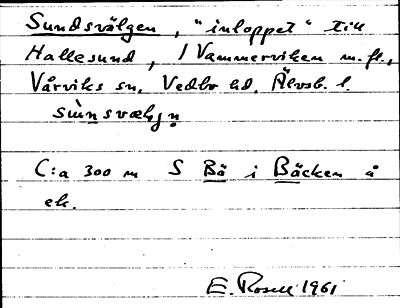 Sundsvälgen, "inloppet" till
Hallesund, I Vammerviken m.fl.,
Vårviks sn, Vedbo hd. Älvsb. l.
sùnsvæljn̥
C:a 300 m S Bä i Bäcken å
ek.
E. Rosell 1961